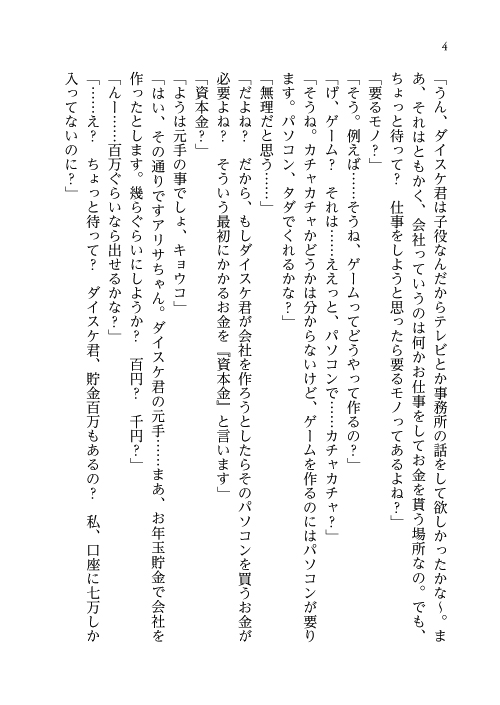 4
「うん、ダイスケ君は子役なんだからテレビとか事務所の話をして欲しかったかな～。ま
あ、それはともかく、会社っていうのは何かお仕事をしてお金を貰う場所なの。でも、
ちょっと待って？　仕事をしようと思ったら要るモノってあるよね？」
「要るモノ？」
「そう。例えば……そうね、ゲームってどうやって作るの？」
「げ、ゲーム？　それは……ええっと、パソコンで……カチャカチャ？」
「そうね。カチャカチャかどうかは分からないけど、ゲームを作るのにはパソコンが要り
ます。パソコン、タダでくれるかな？」
「無理だと思う……」
「だよね？　だから、もしダイスケ君が会社を作ろうとしたらそのパソコンを買うお金が
必要よね？　そういう最初にかかるお金を『資本金』と言います」
「資本金？」
「ようは元手の事でしょ、キョウコ」
「はい、その通りですアリサちゃん。ダイスケ君の元手……まあ、お年玉貯金で会社を
作ったとします。幾らぐらいにしようか？　百円？　千円？」
「んー……百万ぐらいなら出せるかな？」
「……え？　ちょっと待って？　ダイスケ君、貯金百万もあるの？　私、口座に七万しか
入ってないのに？」